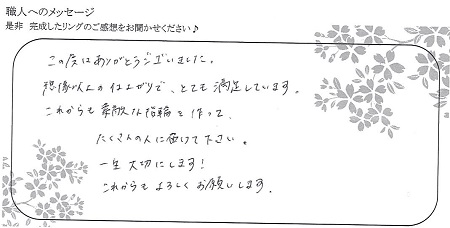 職人へのメッセージ
是非 完成したリングのご感想をお聞かせください♪
この度はありがとうございました。
想像以上の仕上がりで、とても満足しています。
これからも素敵な指輪を作って、
たくさんの人に届けて下さい。
一生大切にします!
これからもよろしくお願いします。